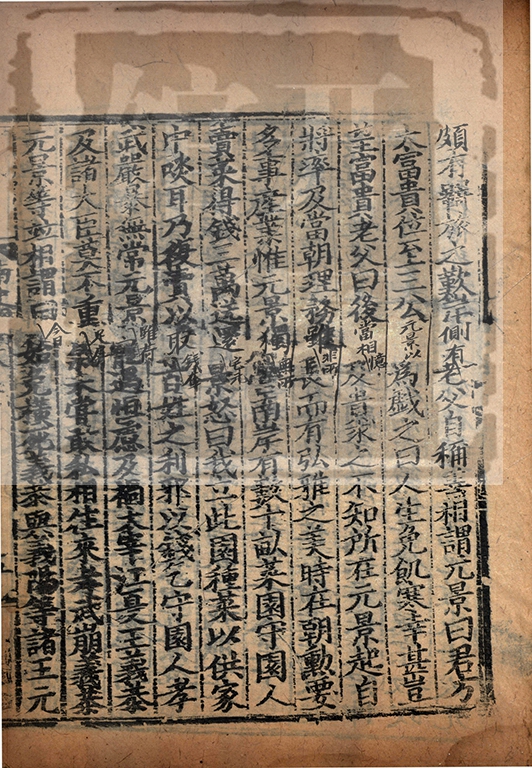 頗有羇旅之歎岸側有老父自稱善相謂元景曰君方
大富貴位至三公元景以為戲之曰人生免飢寒幸甚豈
望富貴老父曰後當相憶及貴求之不知所在元景起自
將率及當朝理務雖非所長而有弘雅之美時在朝勳要
多事産業惟元景獨無所營南岸有數十畝菜園守園人
賣菜得錢三萬送還宅元景怒曰我立此園種菜以供家
中啖耳乃復賣以取百姓之利邪以錢乞守園人孝
武嚴暴無常元景雖荷寵遇恒慮及禍太宰江夏王義恭
及諸大臣莫不重足屏氣未嘗敢私相往來孝武崩義恭
元景等並相謂曰今日始免橫死義恭與義陽等諸王元